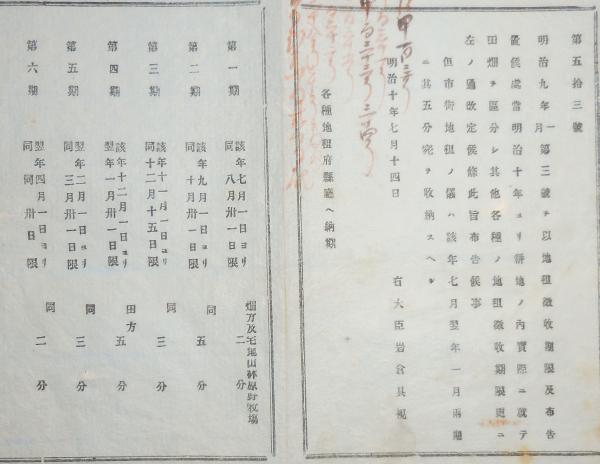 第五拾三號
明治九年一月第三號ヲ以地租徵收期限及布告
置候處當明治十年ヨリ耕地ノ內實際ニ就テ
田畑ヲ區分シ其他各種ノ地租徵收期限更ニ
左ノ通改定候條此旨布告候事
但市街地租ノ儀ハ該年七月翌年一月兩期
ニ其五分宛ヲ收納スヘシ
明治十年七月十四日
右大臣岩倉具視
各種地租府縣廳ヘ納期
畑方及宅地山林原野牧場
第一期 該年七月一日ヨリ同八月卅一日限 二分
第二期 該年九月一日ヨリ同十月卅一日限 同 五分
第三期 該年十一月一日ヨリ同十二月十五日限 同 三分
第四期 該年十二月一日ヨリ翌年一月卅一日限 田方 五分
第五期 翌年二月一日ヨリ同三月卅一日限 同 三分
第六期 翌年四月一日ヨリ同同卅日限 同 二分